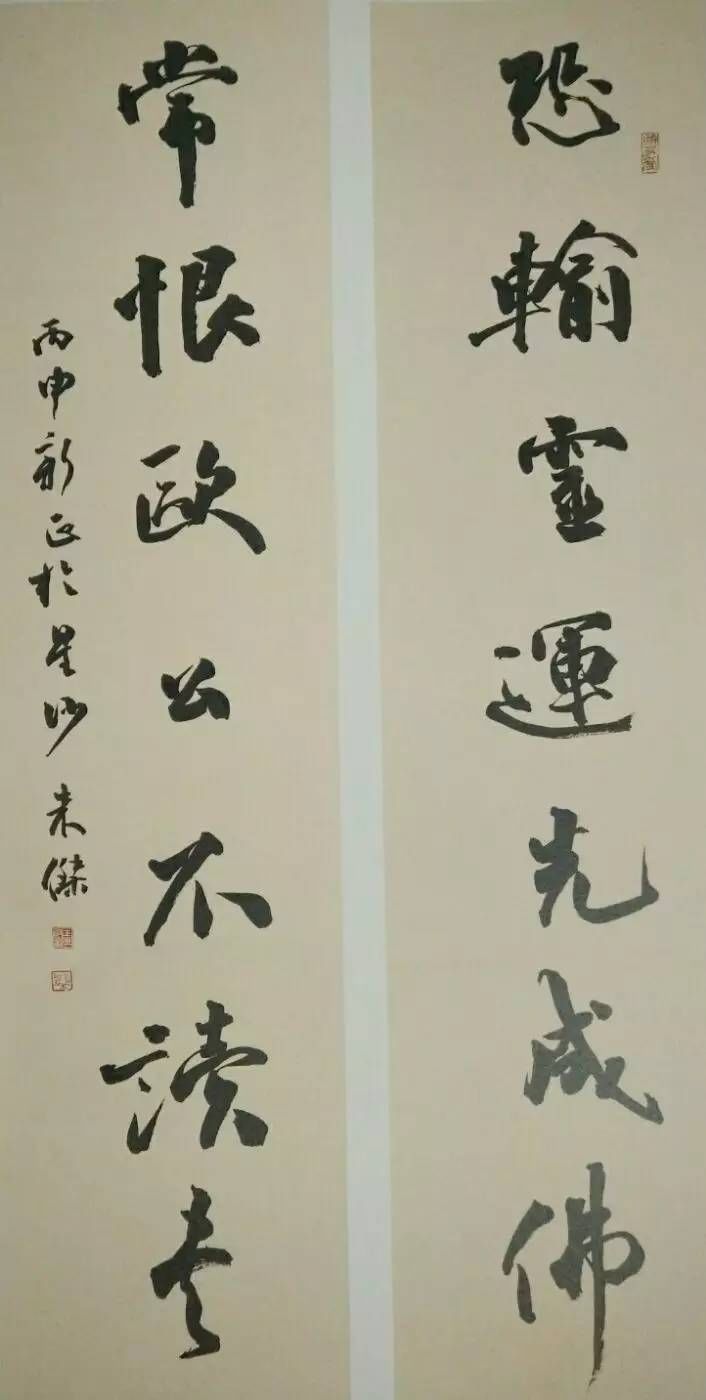 恐輸靈運先成佛
常恨歐公不讀書
丙申新正於星沙 朱傑